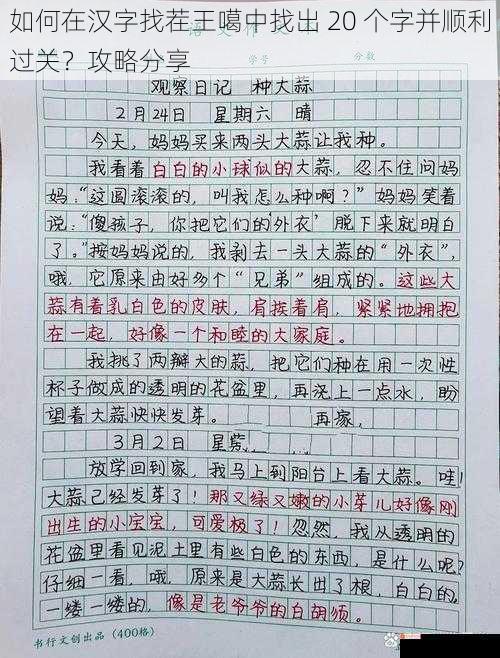 如何在汉字找茬王噶中找出 20 个字并顺利
过关？攻略分享
学号
分数
观察日记 种大蒜
2月24日 星期六 晴
今天，妈妈买来两头大蒜让我种。
我看着白白的小球似的大蒜，忍不住问妈
妈："这圆滚滚的，叫我怎么种啊？"妈妈笑着
说："傻孩子，你把它们的'外衣'脱下来就明白
了。"按妈妈说的，我剥去一头大蒜的"外衣"，
哦，它原来由好多个"兄弟"组成的。这些大
蒜有着乳白色的皮肤，肩挨着肩，紧紧地拥抱
在一起，好像一个和睦的大家庭。
我挑了两瓣大的蒜，把它们种在用一次性
杯子做成的透明的花盆里，再浇上一点水，盼
望着大蒜快快发芽。 再家，
3月2日 星
放学回到家，我马上到阳台上看大蒜。哇！
大蒜已经发芽了！那又绿又嫩的小芽儿好像刚
出生的小宝宝，可爱极了！忽然，我从透明的
花盆里看见泥土里有些白色的东西，是什么呢？
仔细一看，哦，原来是大蒜长出了根，白白的，
一缕一缕的，像是老爷爷的白胡须。
书行文创出品（400格）